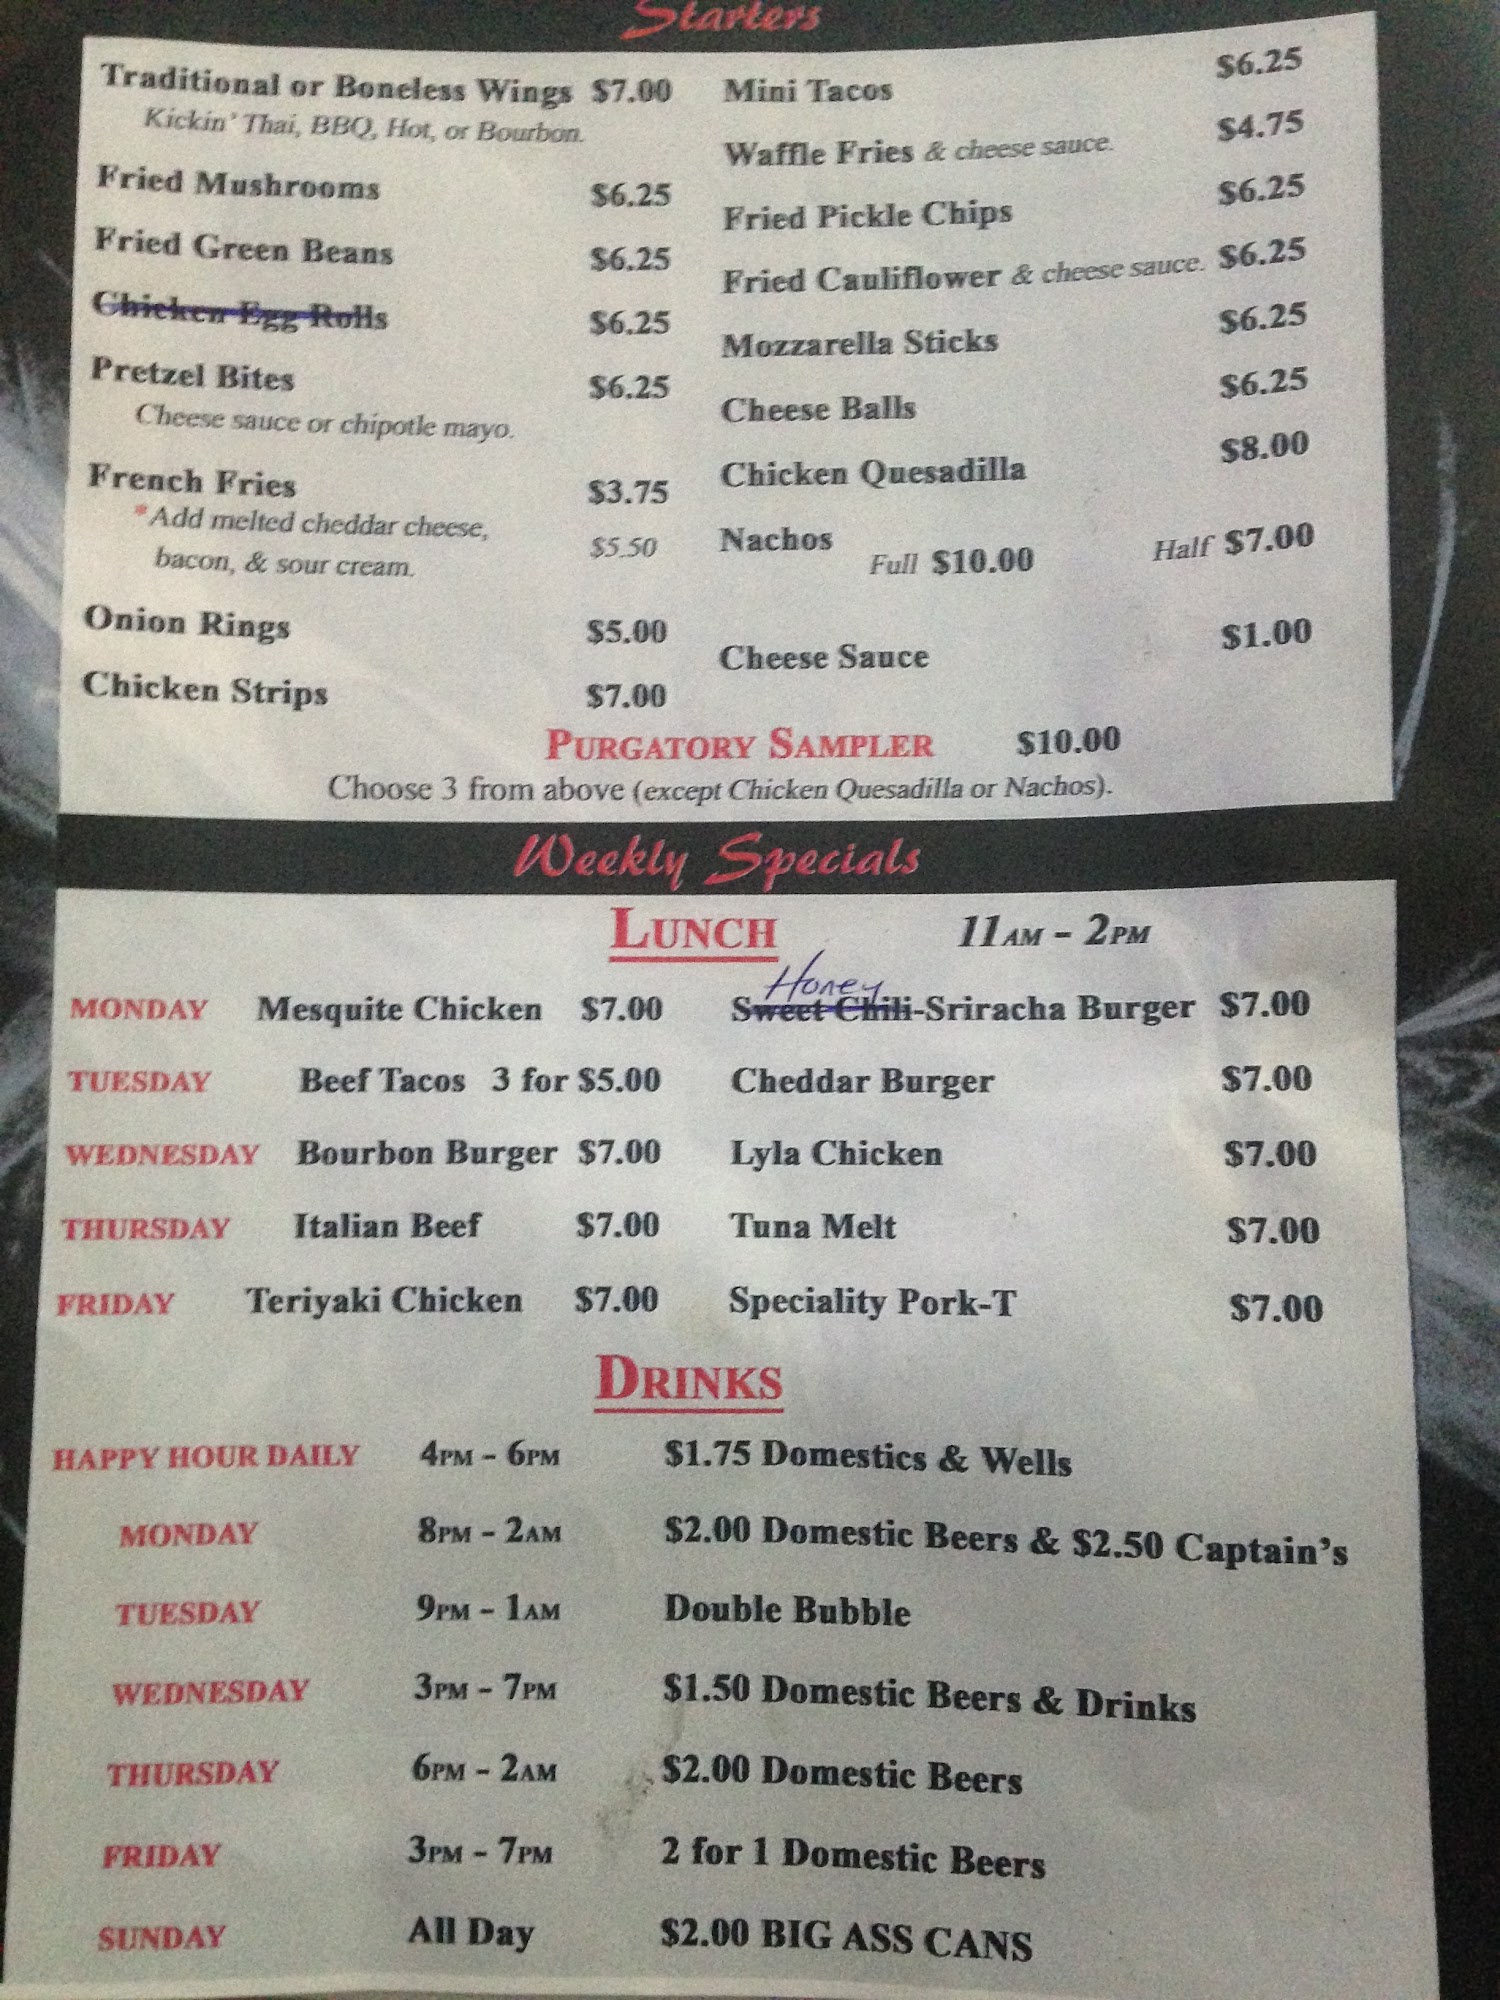 Starters
Traditional or Boneless Wings $7.00
Kickin' Thai, BBQ, Hot, or Bourbon.
Fried Mushrooms $6.25
Fried Green Beans $6.25
Chicken Egg Rolls $6.25
Pretzel Bites $6.25
Cheese sauce or chipotle mayo.
French Fries $3.75
*Add melted cheddar cheese,
bacon, & sour cream. $5.50
Onion Rings $5.00
Chicken Strips $7.00
Mini Tacos $6.25
Waffle Fries & cheese sauce. $4.75
Fried Pickle Chips $6.25
Fried Cauliflower & cheese sauce. $6.25
Mozzarella Sticks $6.25
Cheese Balls $6.25
Chicken Quesadilla $8.00
Nachos Full $10.00 Half $7.00
Cheese Sauce $1.00
PURGATORY SAMPLER $10.00
Choose 3 from above (except Chicken Quesadilla or Nachos).
Weekly Specials
LUNCH 11AM - 2PM
Honey
MONDAY Mesquite Chicken $7.00 Sweet Chili-Sriracha Burger $7.00
TUESDAY Beef Tacos 3 for $5.00 Cheddar Burger $7.00
WEDNESDAY Bourbon Burger $7.00 Lyla Chicken $7.00
THURSDAY Italian Beef $7.00 Tuna Melt $7.00
FRIDAY Teriyaki Chicken $7.00 Speciality Pork-T $7.00
DRINKS
HAPPY HOUR DAILY 4PM - 6PM $1.75 Domestics & Wells
MONDAY 8PM - 2AM $2.00 Domestic Beers & $2.50 Captain's
TUESDAY 9PM - 1AM Double Bubble
WEDNESDAY 3PM - 7PM $1.50 Domestic Beers & Drinks
THURSDAY 6PM - 2AM $2.00 Domestic Beers
FRIDAY 3PM - 7PM 2 for 1 Domestic Beers
SUNDAY All Day $2.00 BIG ASS CANS